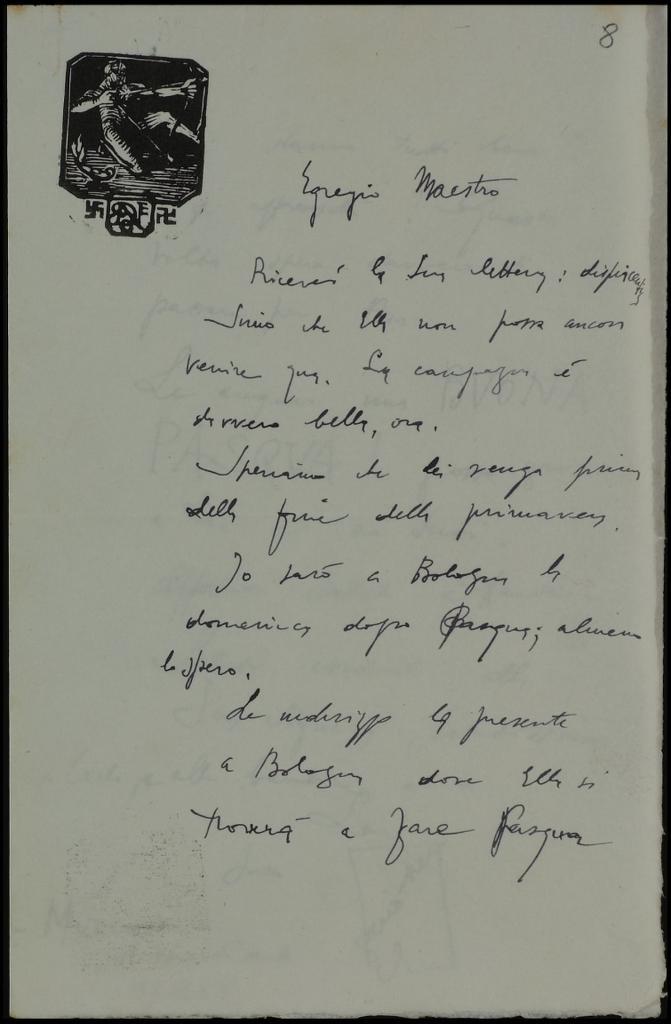 8
Egregio Maestro
Ricevei la Sua lettera: dispiacentis
simo che Ella non possa ancora
venire qua. La campagna è
davvero bella, ora.
Speriamo che lei venga prima
della fine della primavera.
Io sarò a Bologna la
domenica dopo Pasqua; almeno
lo spero.
Le indirizzo la presente
a Bologna dove Ella si
troverà a fare Pasqua